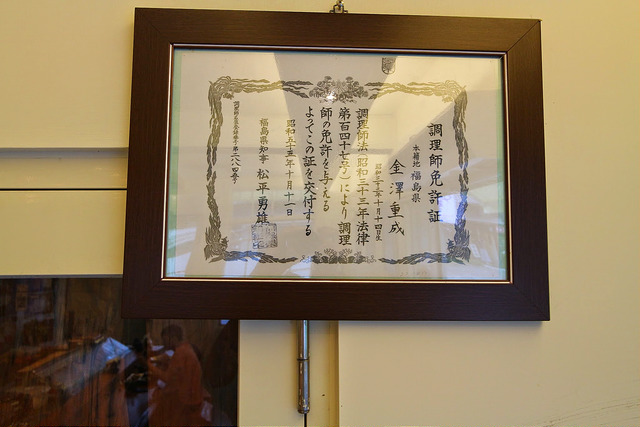 調理師免許証
本籍地 福島県
金澤重成
昭和三十三年十月十四日生
調理師法(昭和三十三年法律
第百四十七号)により調理
師の免許を与える
よってこの証を交付する
昭和五十三年十月十一日
福島県知事 松平勇雄